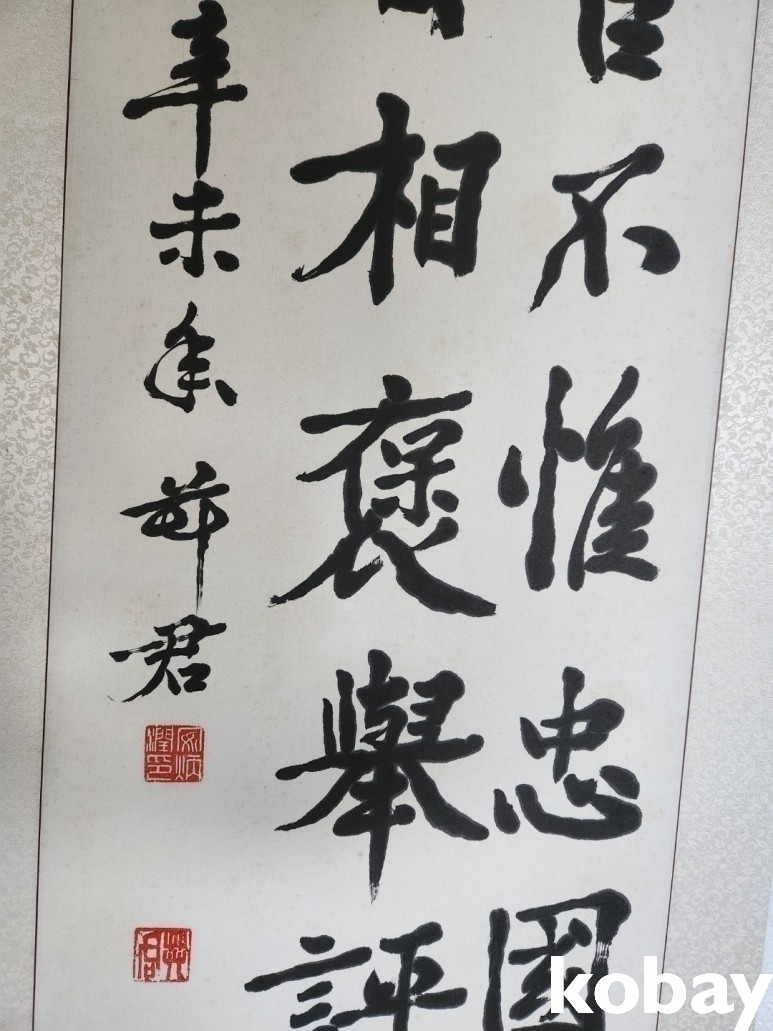 不惟忠國
相褒舉評
辛未年 君
kobay